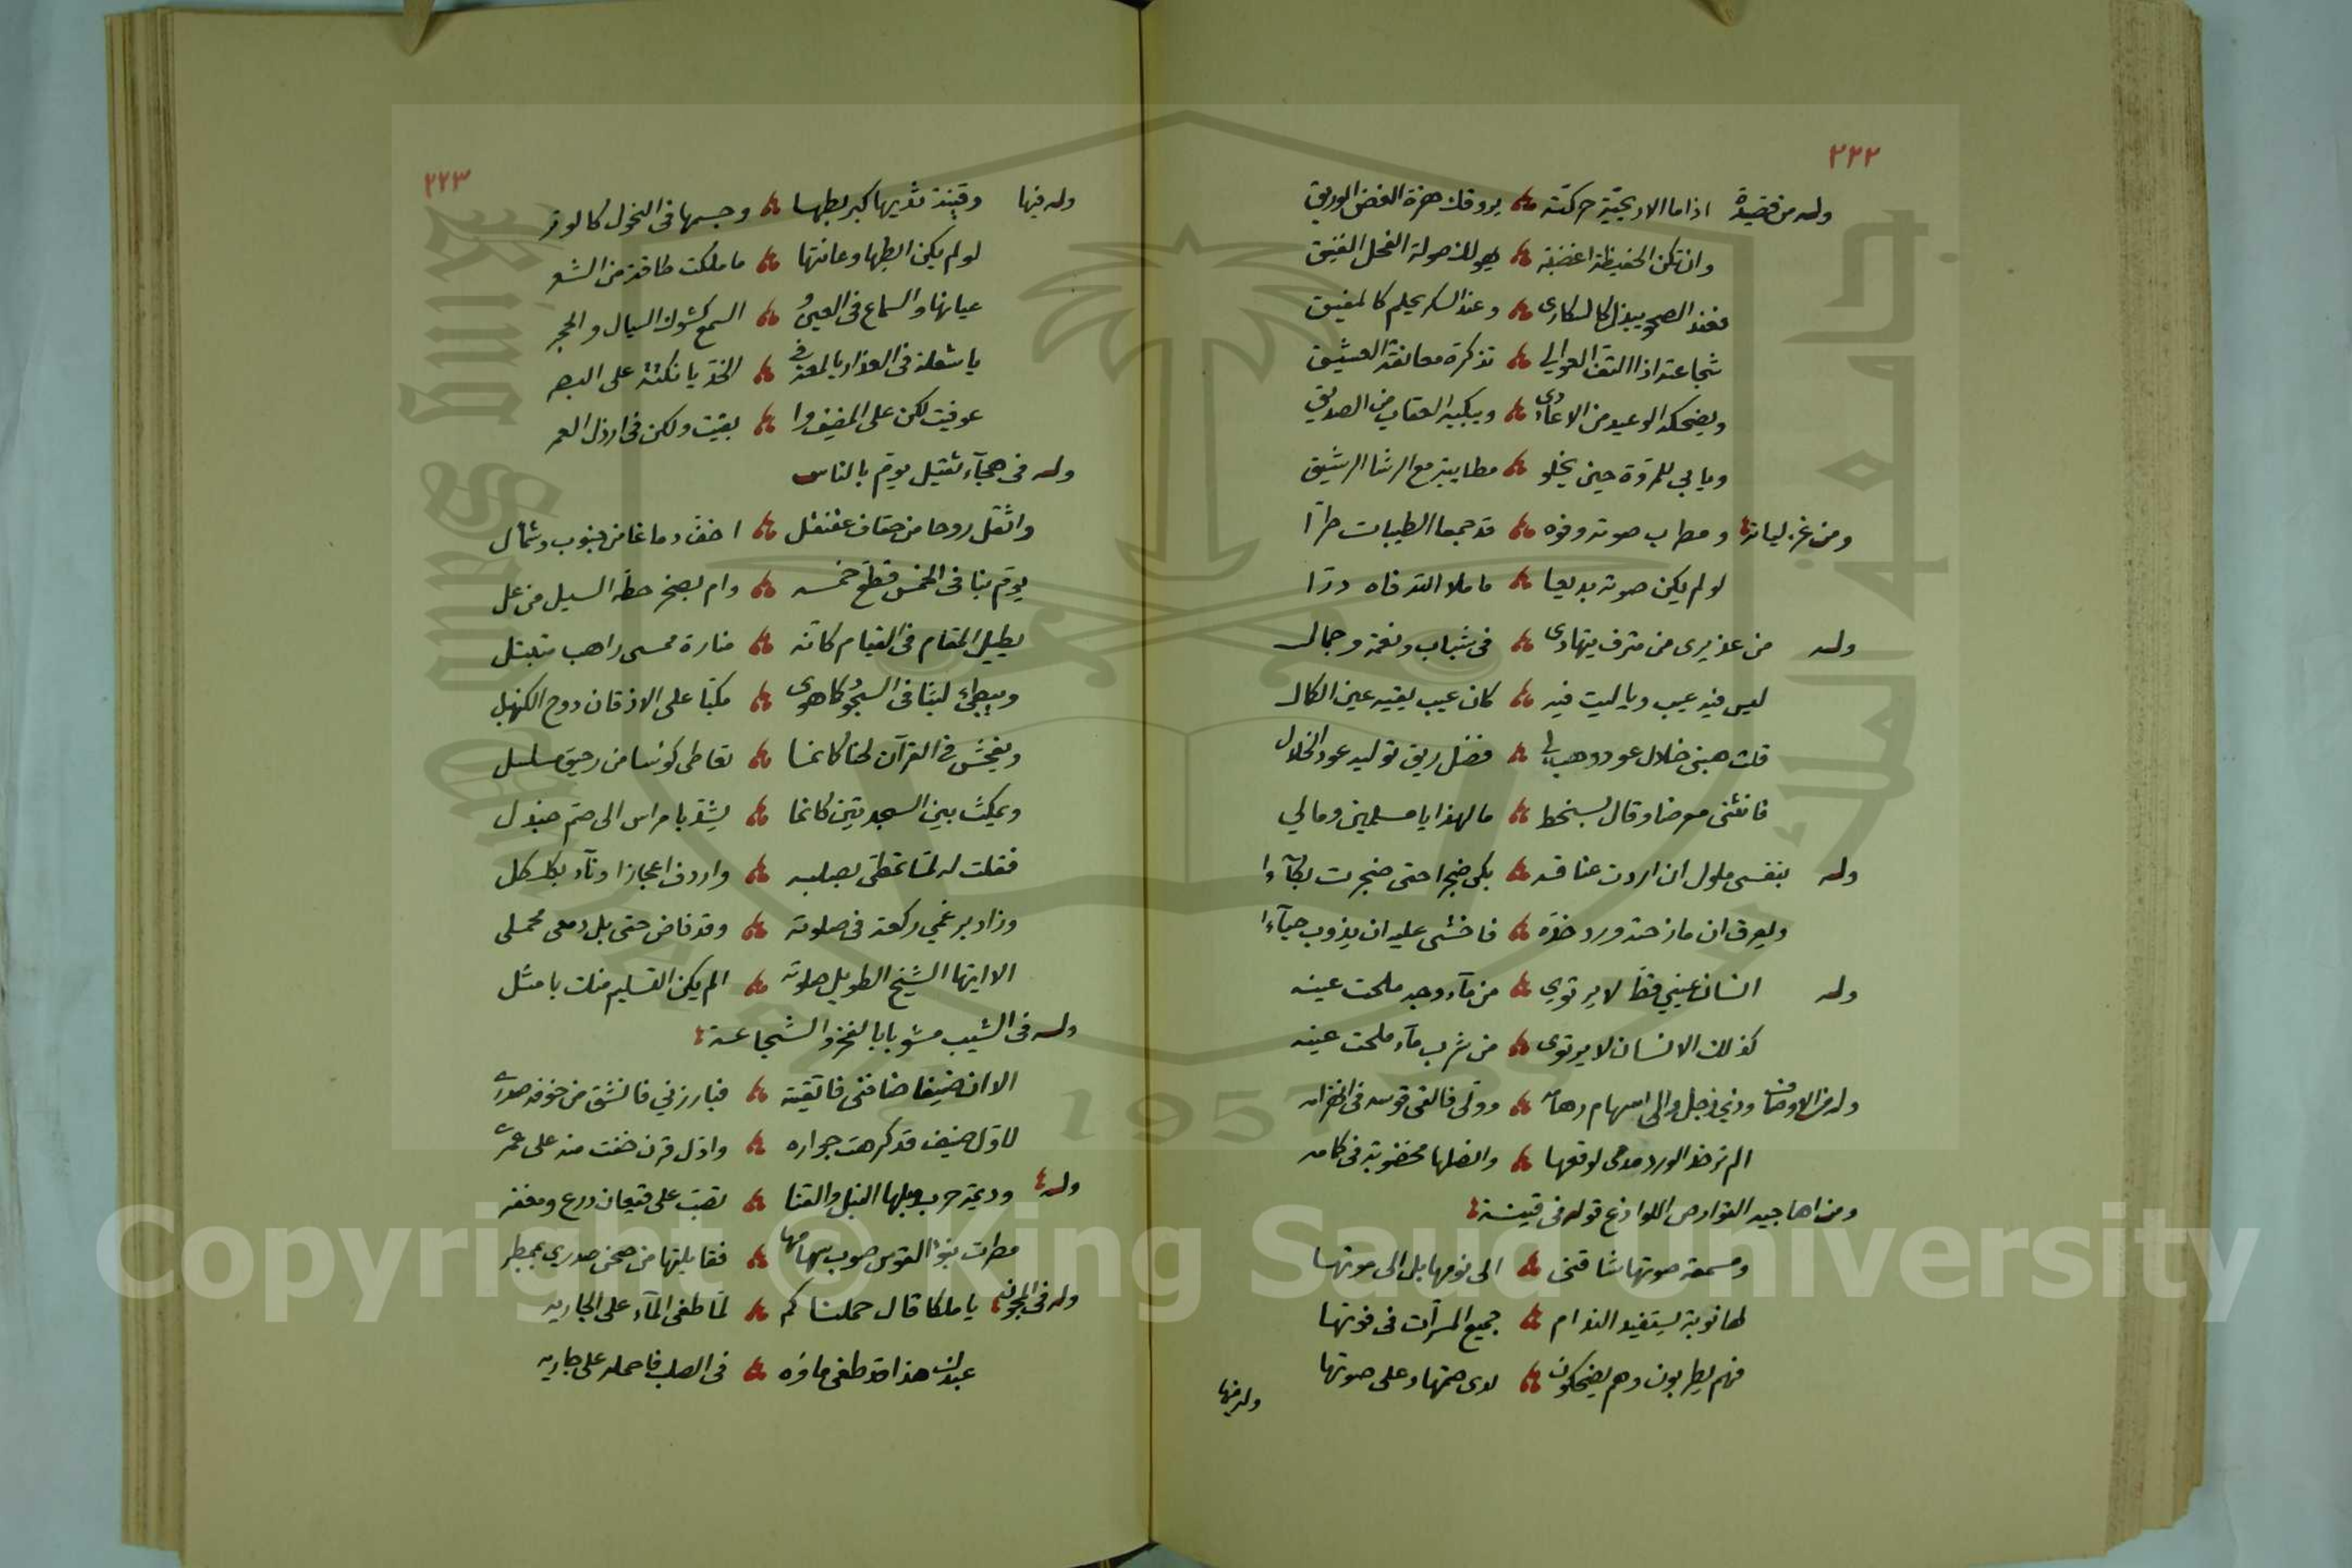 ٢٢٢
وله من قصيدة اذا ما الاريحية حركته يروقك هزة الغصن الوريق
وان تكن الحفيظة اغضبته يهولك صولة الفحل الفنيق
فعند الصحو يبذل كالسكارى وعند السكر يحلم كالمفيق
شجاعته اذا التفت العوالي تذكره معانقة العشيق
ويضحكه الوعيد من الاعادى ويبكيه العقاب من الصديق
ويابى للمروة حين يخلو مطايبة مع الرشا الرشيق
ومن غزلياته ومطرب صوته وفوه قد جمعا الطيبات طرا
لو لم يكن صوته بديعا ما ملا الله فاه درا
وله من عذيرى من مترف يتهادى فى شباب ونعمة وجمال
ليس فيه عيب وياليت فيه كان عيب يقيه عين الكمال
قلت هبنى خلال عود وهب لى فضل ريق توليه عود الخلال
فانثنى معرضا وقال بسخط ما لهذا يا مسلمين ومالي
وله بنفسى ملول ان اردت عناقه بكى ضجرا حتى ضجرت بكآءا
ويعرق ان مازحته ورد خده فاخشى عليه ان يذوب حيآءا
وله انسان عيني قط لا يرتوي من مآء وجه ملحت عينه
كذلك الانسان لا يرتوى من شرب مآء ملحت عينه
وله من الاوصاف وذي زجل والى سهام رهامه وولى فالقى قوسه فى انهزامه
الم تر خد الورد مدمى لوقعها وانصلها مخضوبة فى كامه
ومن اهاجيه القوارص اللواذع قوله فى قينة
ومسمعة صوتها شاقنى الى نومها بل الى موتها
لها نوبة يستفيد الندام جميع المسرات فى فوتها
فهم يطربون وهم يضحكون لدى صمتها وعلى صوتها
وله فيها
٢٢٣
وله فيها وقينة ثديها كبر بطنها وجسمها فى النحول كالوتر
لو لم يكن ابطها وعانتها ما ملكت طاقة من الشعر
عيانها والسماع فى العين و السمع كشوك السيال والحجر
يا شعلة فى العذار يا لمعة فى الخد يا نكتة على البصر
عوفيت لكن على المضيف وا بقيت ولكن فى ارذل العمر
وله فى هجآء ثقيل يؤم بالناس
واثقل روحا من حقاف عقنقل اخف دماغا من جنوب وشمأل
يؤم بنا فى الخمس قطع خمسه وام بصخر حطه السيل من عل
يطيل المقام فى القيام كانه منارة ممسى راهب متبتل
ويبطئ لبثا فى السجود كما هوى مكبا على الاذقان دوح الكنهبل
ويفحش فى القرآن لحنا كانما تعاطى كوسا من رحيق مسلسل
ويمكث بين السجدتين كانما يشد بامراس الى صم جندل
فقلت له لما تمطى بصلبه واردف اعجازا ونآء بكلكل
وزاد برغمي ركعة فى صلوته وقد فاض حتى بل دمعى محملى
الا ايها الشيخ الطويل صلوته الم يكن التسليم منك بامثل
وله فى الشيب مشوبا بالفخر والشجاعة
الا ان ضيفا ضافنى فاتقيته فبارزني فانشق من خوفه صدرى
لاول ضيف قد كرهت جواره واول قرن خفت منه على عمرى
وله وديمة حرب وبلها النبل والقنا تصب على قيعان درع ومغفر
مطرت بنوء القوس صوب سهامها فقابلتها من صحن صدري بممطر
وله فى المجون يا ملكا قال حملناكم لما طغى المآء على الجاريه
عبدك هذا قد طغى مآؤه فى الصلب فاحمله على جاريه